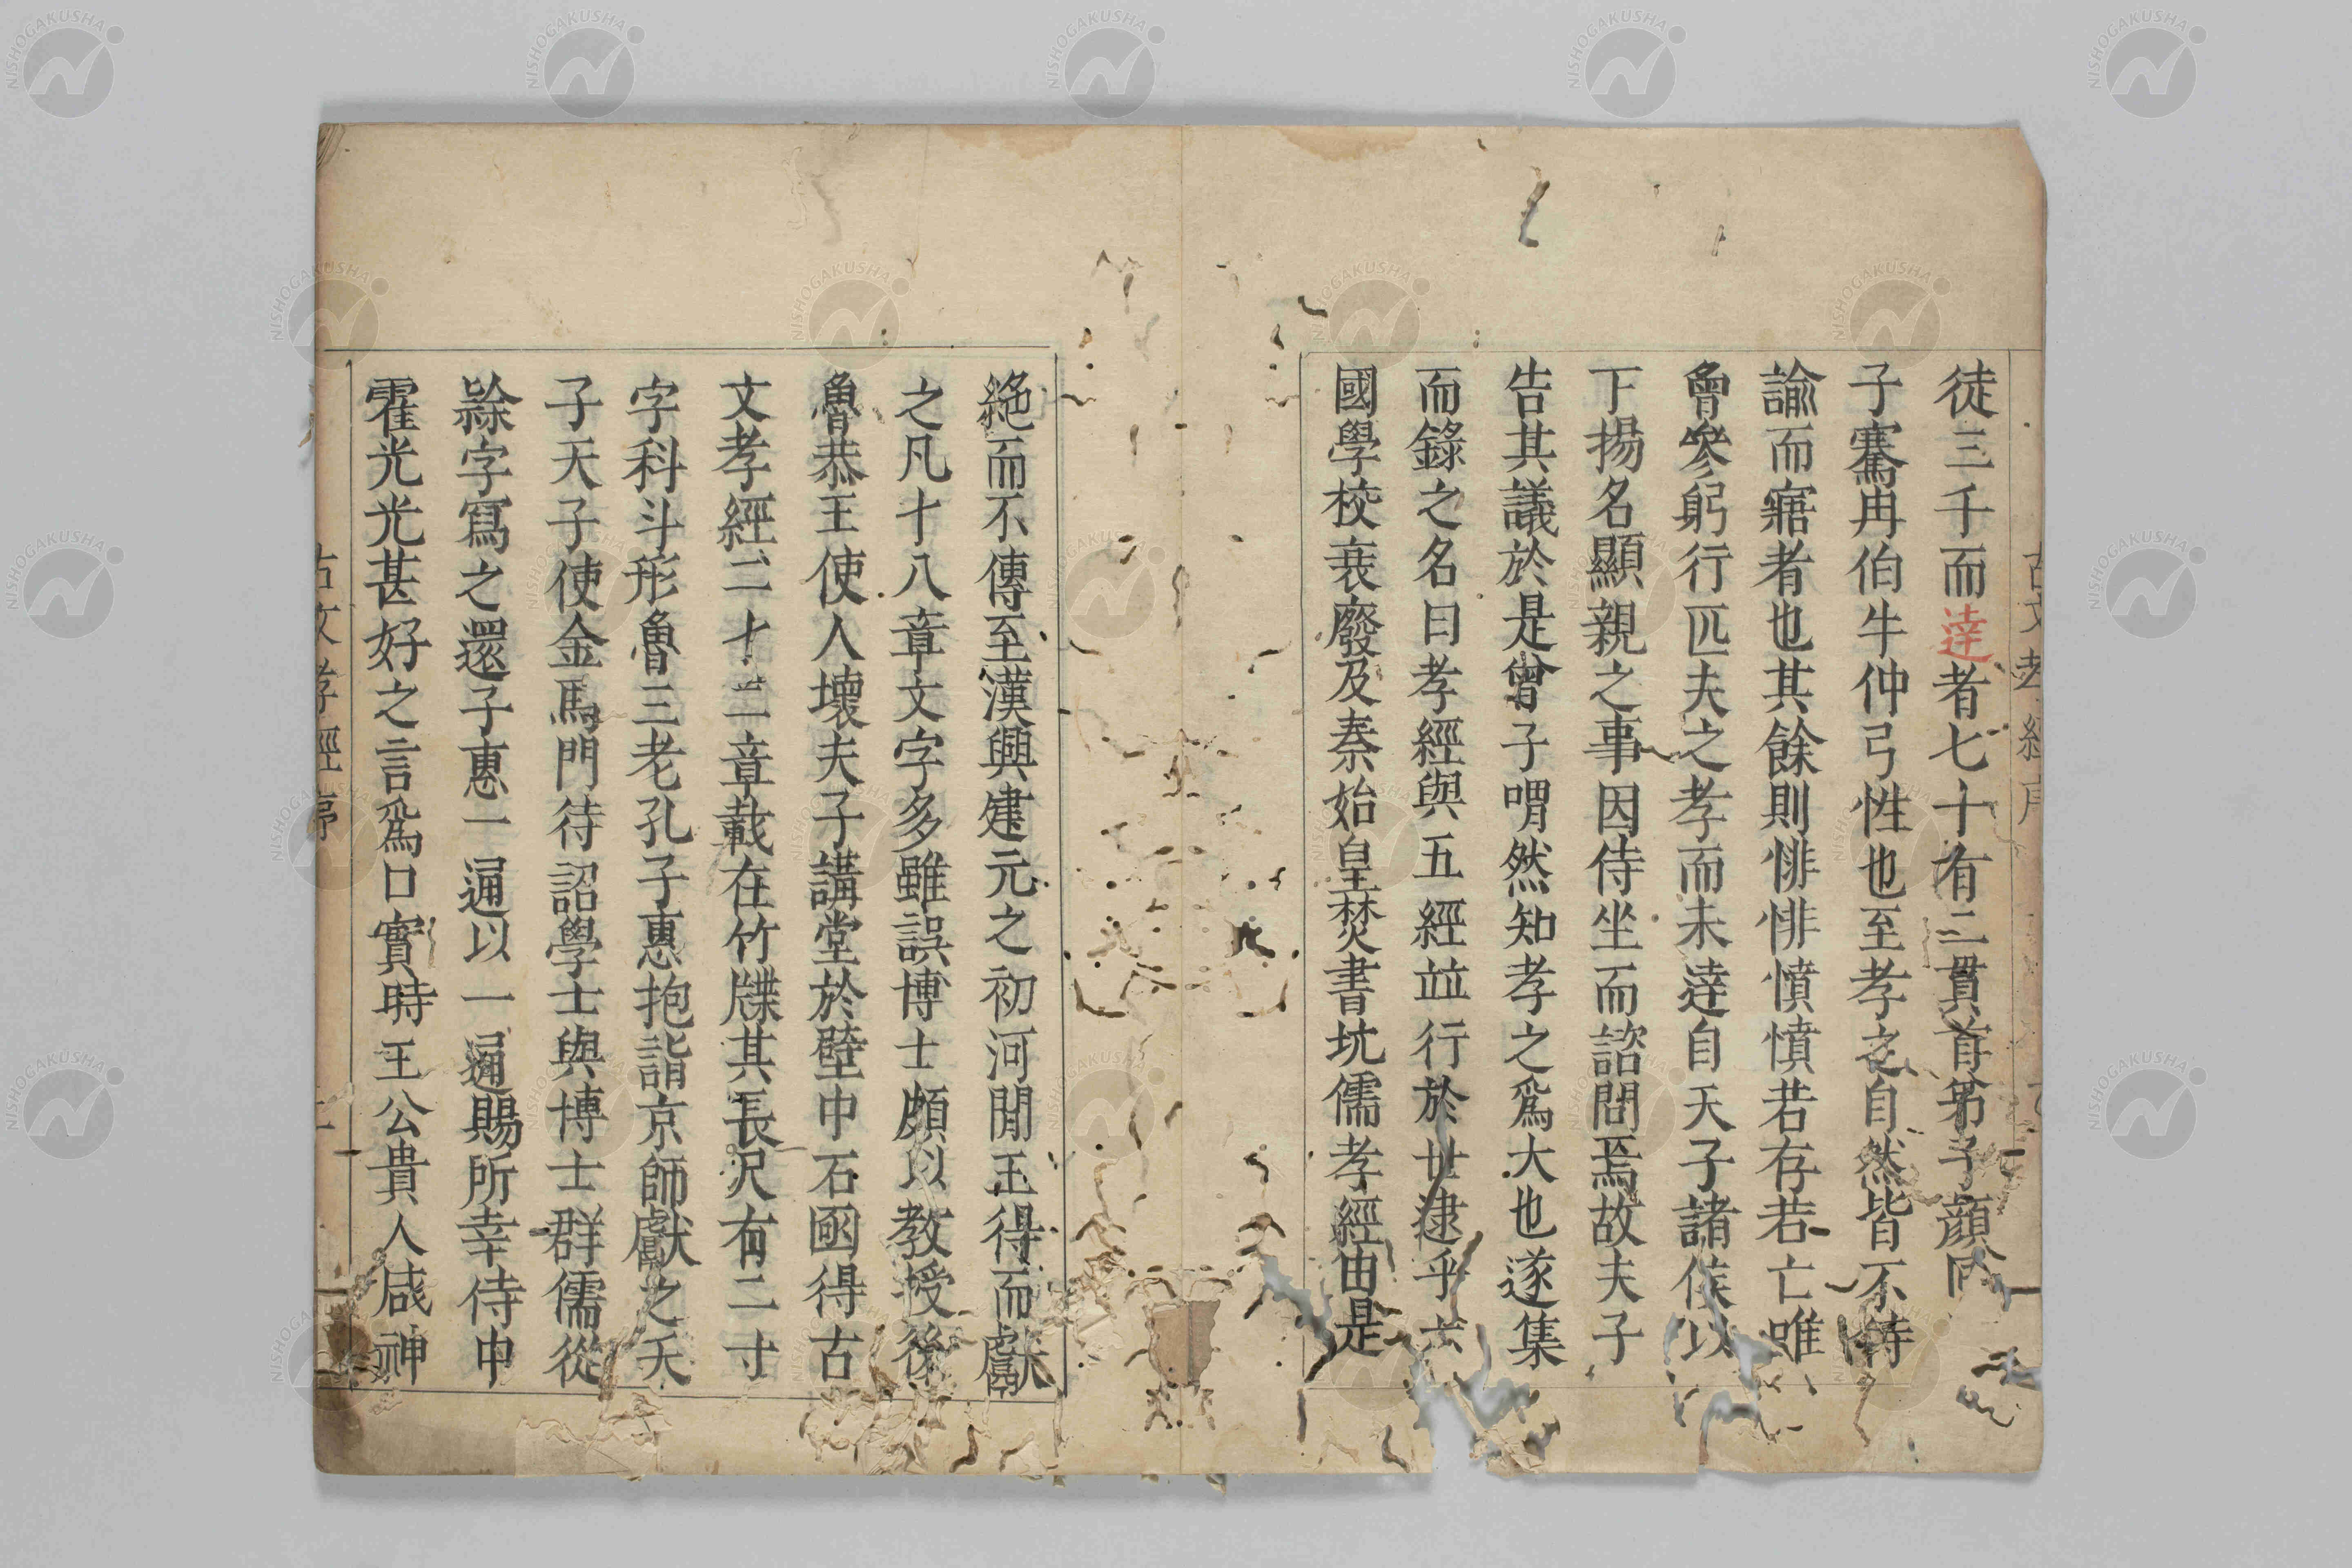 徒三千而達者七十有二貫首弟子顔回
子騫冉伯牛仲弓性也至孝之自然皆不待
諭而寤者也其餘則悱悱憤憤若存若亡唯
曾參躬行匹夫之孝而未達自天子諸侯以
下揚名顯親之事因侍坐而諮問焉故夫子
告其議於是曾子喟然知孝之爲大也遂集
而錄之名曰孝經與五經並行於世逮乎六
國學校衰廢及秦始皇焚書坑儒孝經由是
絶而不傳至漢興建元之初河閒王得而獻
之凡十八章文字多雖誤博士頗以教授後
魯恭王使人壞夫子講堂於壁中石圅得古
文孝經二十二章載在竹牒其長尺有二寸
字科斗形魯三老孔子惠抱詣京師獻之天
子天子使金馬門待詔學士與博士群儒從
隸字寫之還子惠一通以一通賜所幸侍中
霍光光甚好之言爲口實時王公貴人咸神
古文孝經序
NISHOGAKUSHA